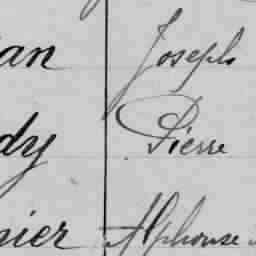 an Joseph
dy Pierre
nier Alphonse